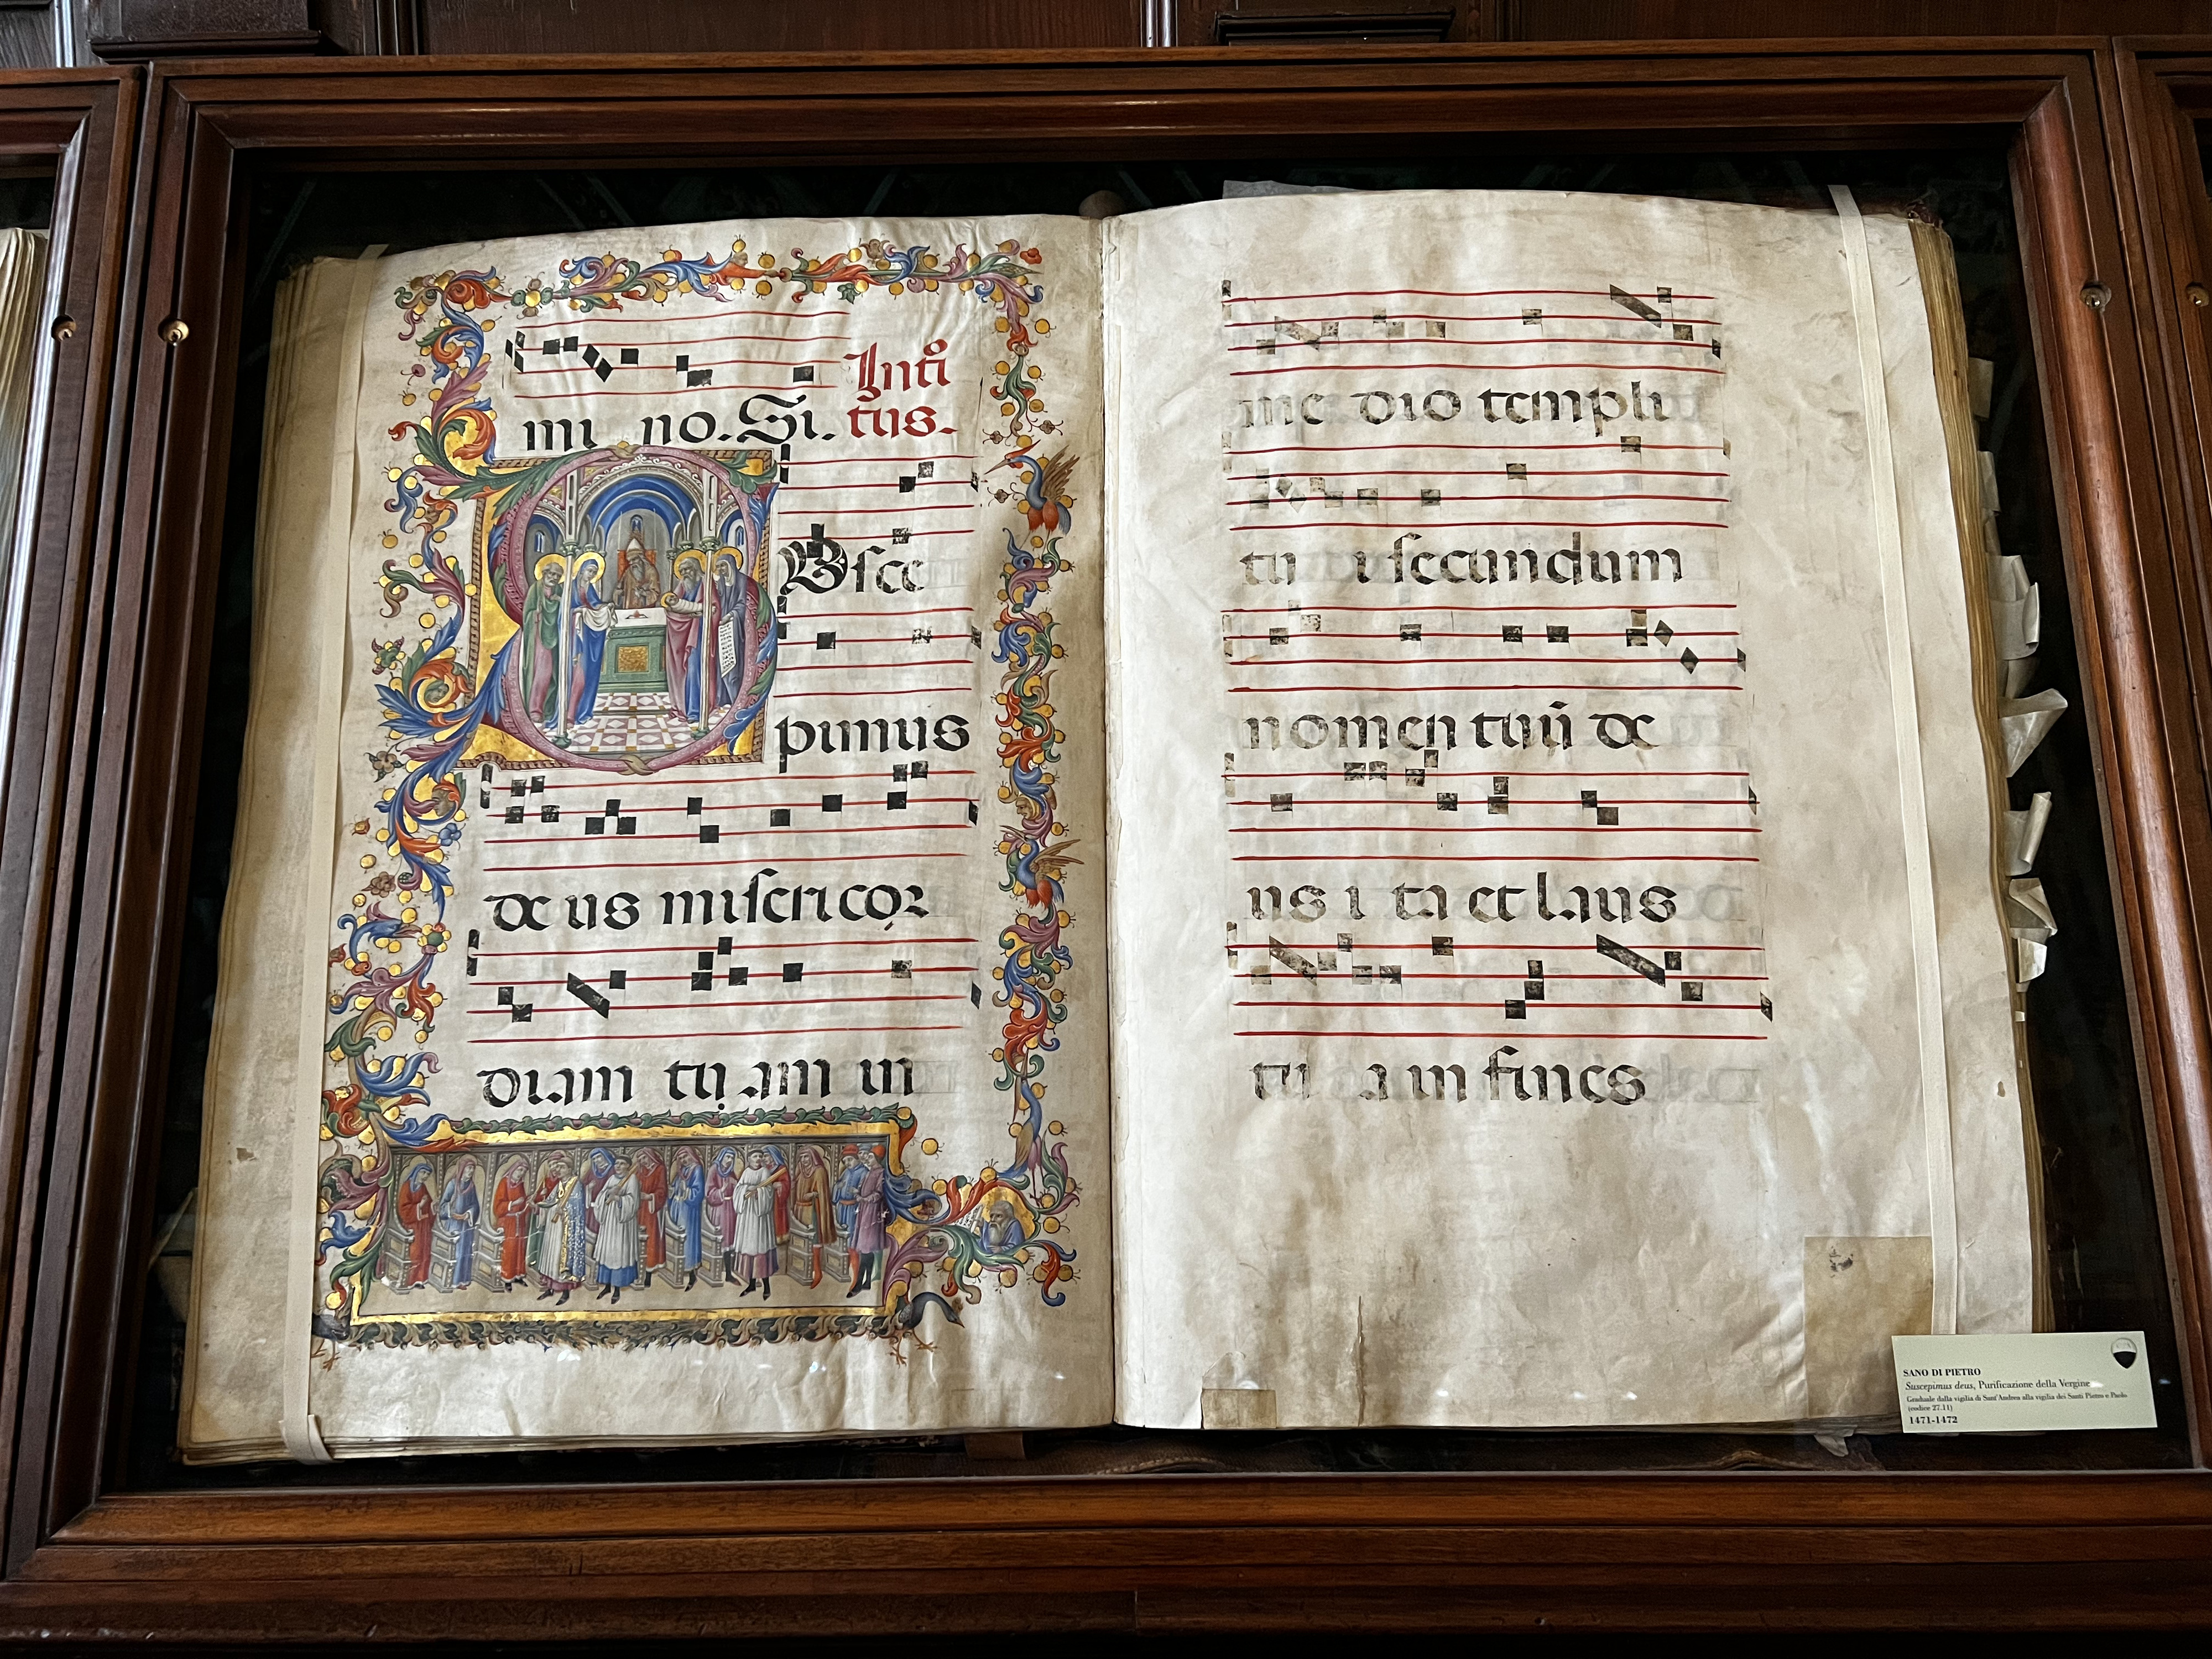 mi no. Si. Intr
itus.
Vsce
pimus
de us misericor
diam tu am in
me dio templi
tu i secundum
nomen tuū de
us i ta et laus
tu a in fines
SANO DI PIETRO
Suscepimus deus, Purificazione della Vergine
Graduale dalla vigilia di Sant'Andrea alla vigilia dei Santi Pietro e Paolo
(codice 27.11)
1471-1472